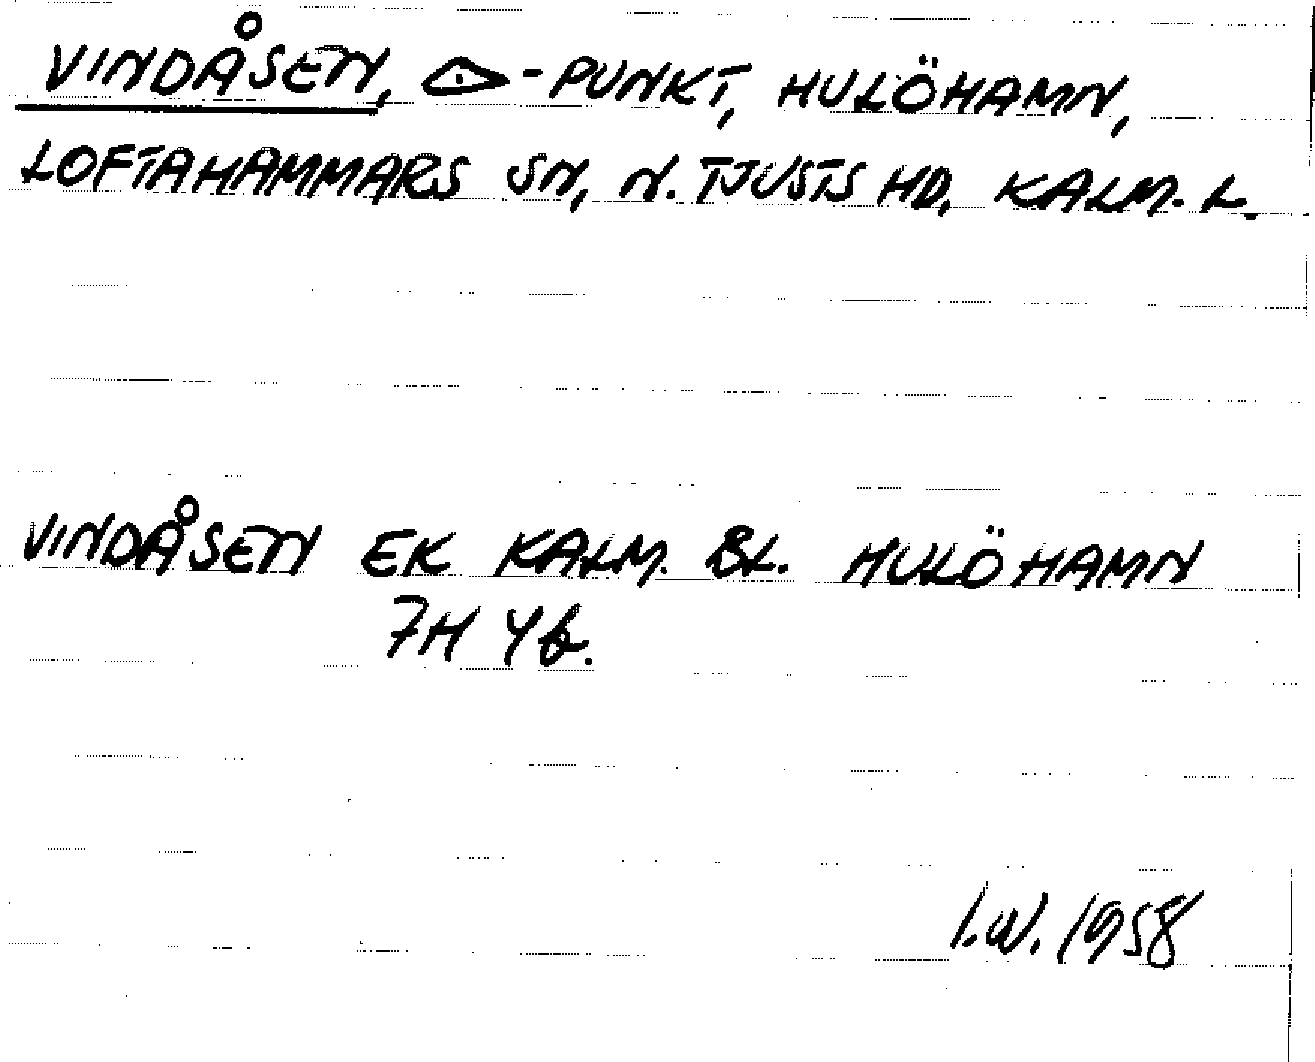 VINDÅSEN, △-PUNKT, HULÖHAMN,
LOFTAHAMMARS SN, N. TJUSTS HD, KALM. L.
VINDÅSEN EK KALM. BL. HULÖHAMN
7H 4b.
I.W. 1958